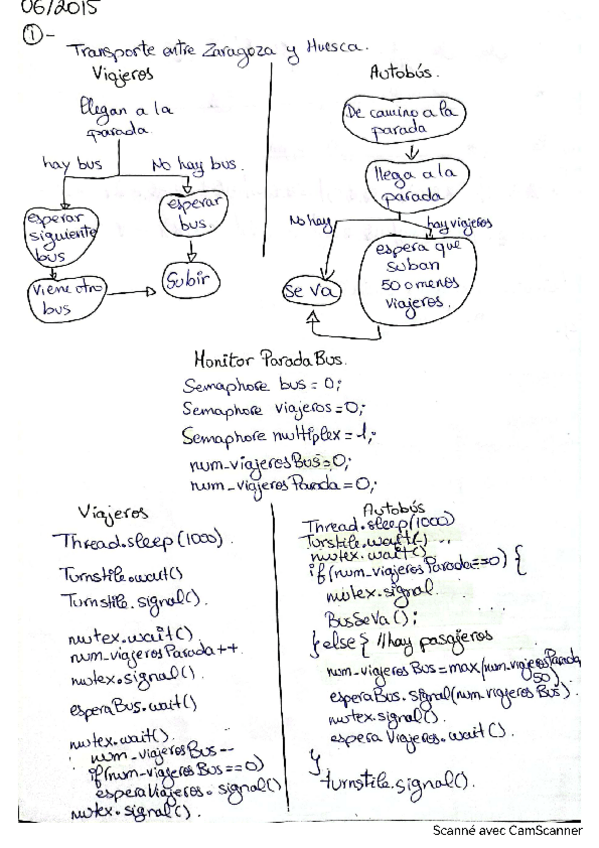 06/2015
①-
Transporte entre Zaragoza y Huesca.
Viajeros
llegan a la
parada
hay bus
No hay bus.
esperar
siguiente
bus
esperar
bus.
Viene otro
bus
Subir
Autobús.
De camino a la
parada
llega a la
parada
No hay
hay viajeros
se va
espera que
suban
50 o menos
viajeros.
Monitor Parada Bus.
Semaphore bus = 0;
Semaphore viajeros = 0;
Semaphore multiplex = 1;
num_viajerosBus = 0;
num_viajerosParada = 0;
Viajeros
Thread.sleep (1000).
Turnstile.wait()
Turnstile.signal().
mutex.wait()
num_viajerosParada ++
mutex.signal()
esperaBus.wait()
mutex.wait().
num_viajerosBus--
if(num_viajerosBus == 0)
esperaViajeros.signal()
mutex.signal().
Autobús
Thread.sleep(1000)
Turstile.wait()
mutex.wait()
if(num_viajerosParada==0) {
mutex.signal
BusSeVa();
} else { //hay pasajeros
num_viajerosBus = max(num_viajerosParada
50)
esperaBus.signal(num_viajeros Bus).
mutex.signal().
espera Viajeros.wait().
}
turnstile.signal().
Scanné avec CamScanner